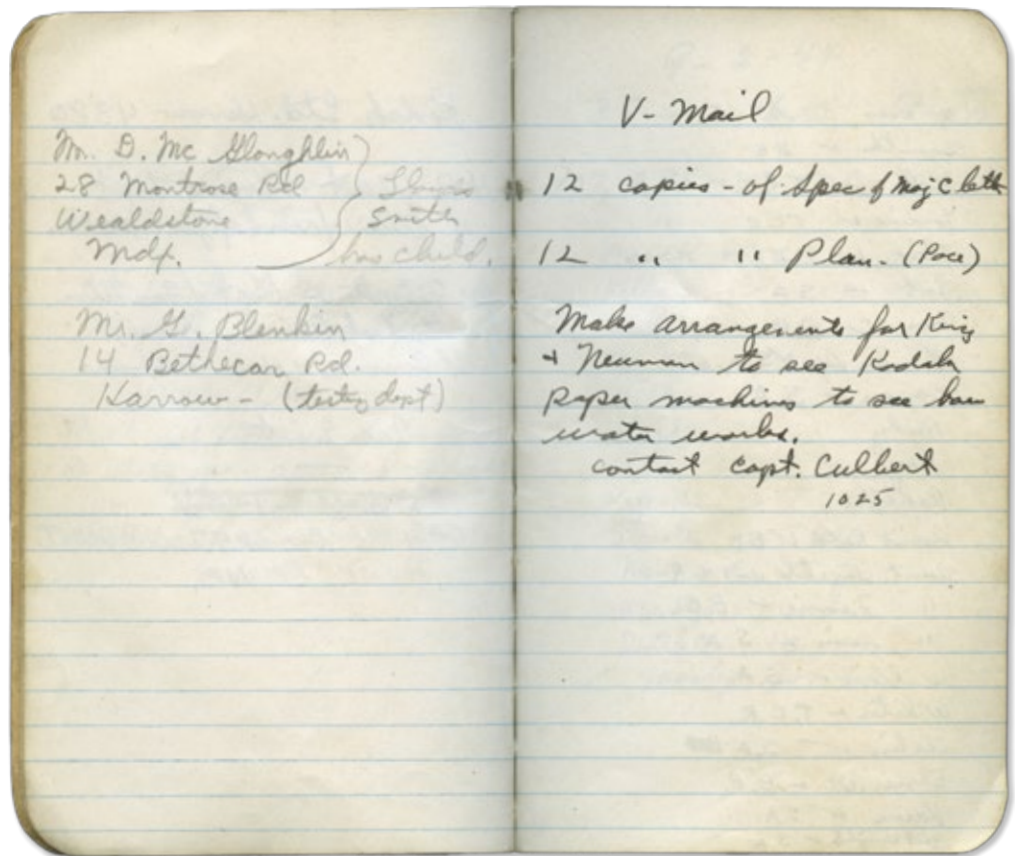 Mr. D. Mc Gloughlin
28 Montrose Rd
Wealdstone
Mdx.
Smith
child.
Mr. G. Blenkin
14 Bethecar Rd.
Harrow - (testing dept)
V- Mail
12 copies - of Spec of Maj C lett
12 " " Plan. (Pace)
Make arrangements for King
+ Neuman to see Kodak
paper machines to see how
water works.
contact Capt. Culbert
1025